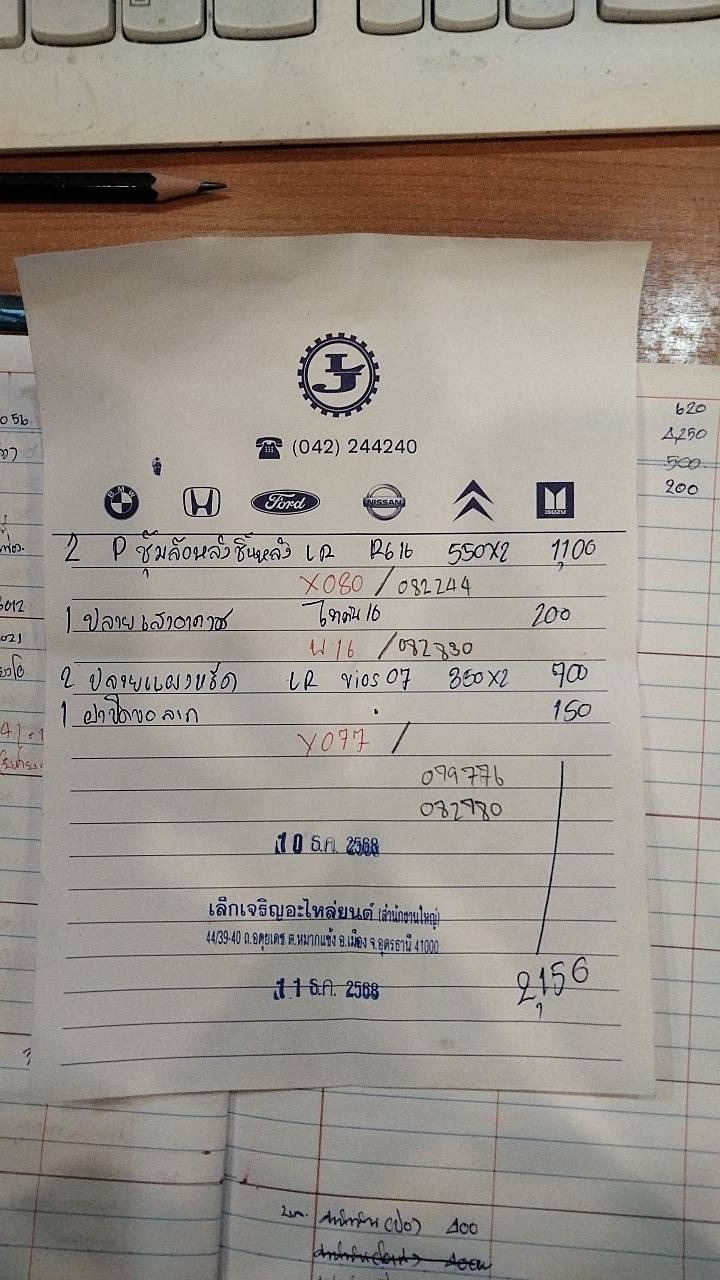 LJ
(042) 244240
BMW
Ford
NISSAN
ISUZU
2 P ซุ้มล้อหลังชิ้นหลัง LR R616 550X2 1,100
X080 / 082244
1 ปลายเสาอากาศ ไททัน16 200
W16 / 082830
2 ปลายแผงหรีด LR vios 07 350X2 700
1 ฝาปิดขอลาก 150
Y077 /
079776
082980
10 ธ.ค. 2568
เล็กเจริญอะไหล่ยนต์ (สำนักงานใหญ่)
44/39-40 ถ.อดุยเดช ต.หมากแข้ง อ.เมือง จ.อุดรธานี 41000
11 ธ.ค. 2568
2,150
620
500
200
400